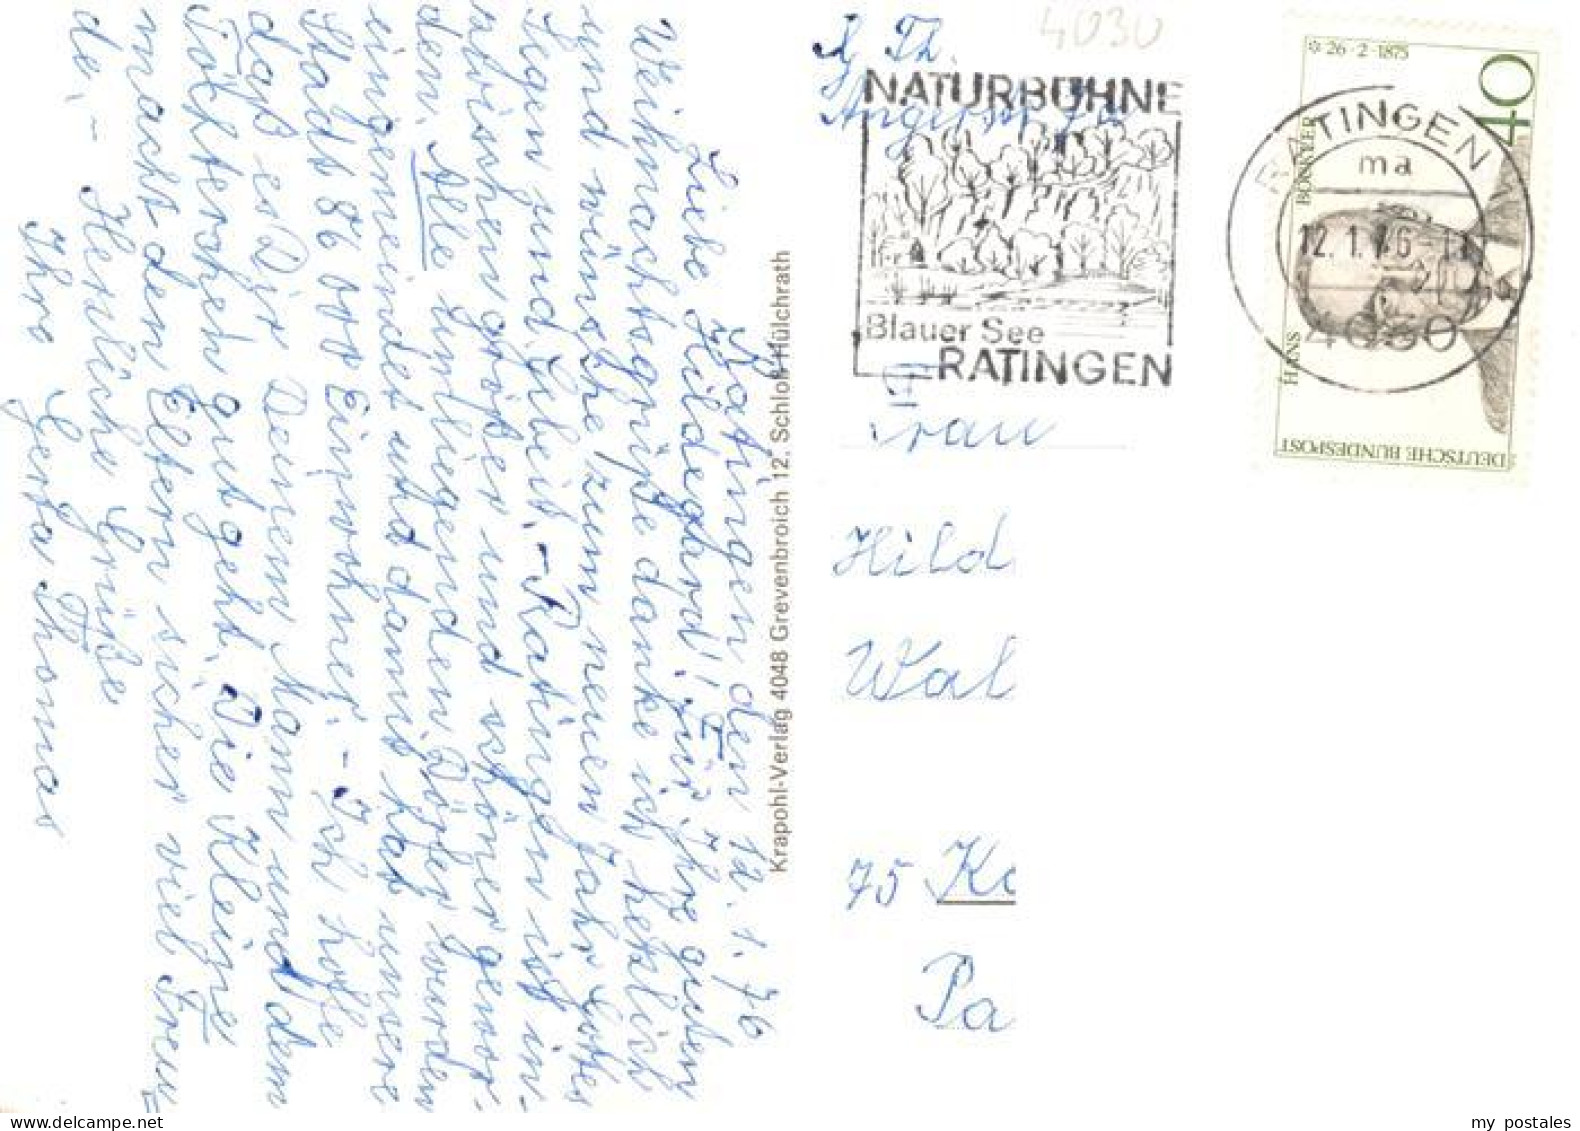 Ratingen den 12. 1. 76
Liebe Hildegard! Für Ihre guten
Weihnachtsgrüße danke ich herzlich
und wünsche zum neuen Jahr Gottes
Segen und Geleit. - Ratingen ist in-
zwischen größer und schöner gewor-
den. Alle umliegenden Dörfer wurden
eingemeindet und damit hat unsere
Stadt 86 000 Einwohner. - Ich hoffe
daß es Dir Deinem Mann und dem
Töchterchen gut geht. Die Kleine
macht den Eltern sicher viel Freu-
de. - Herzliche Grüße
Ihre Gerta Thomas
Krapohl-Verlag 4048 Grevenbroich 12, Schloß Hülchrath
4030
Th.
Angerstr.
NATURBÜHNE
Blauer See
RATINGEN
RATINGEN
ma
12. 1. 76
4030
40
* 26·2·1875
HANS BÖCKLER
DEUTSCHE BUNDESPOST
Frau
Hild
Wal
75 Ka
Pa
my postales